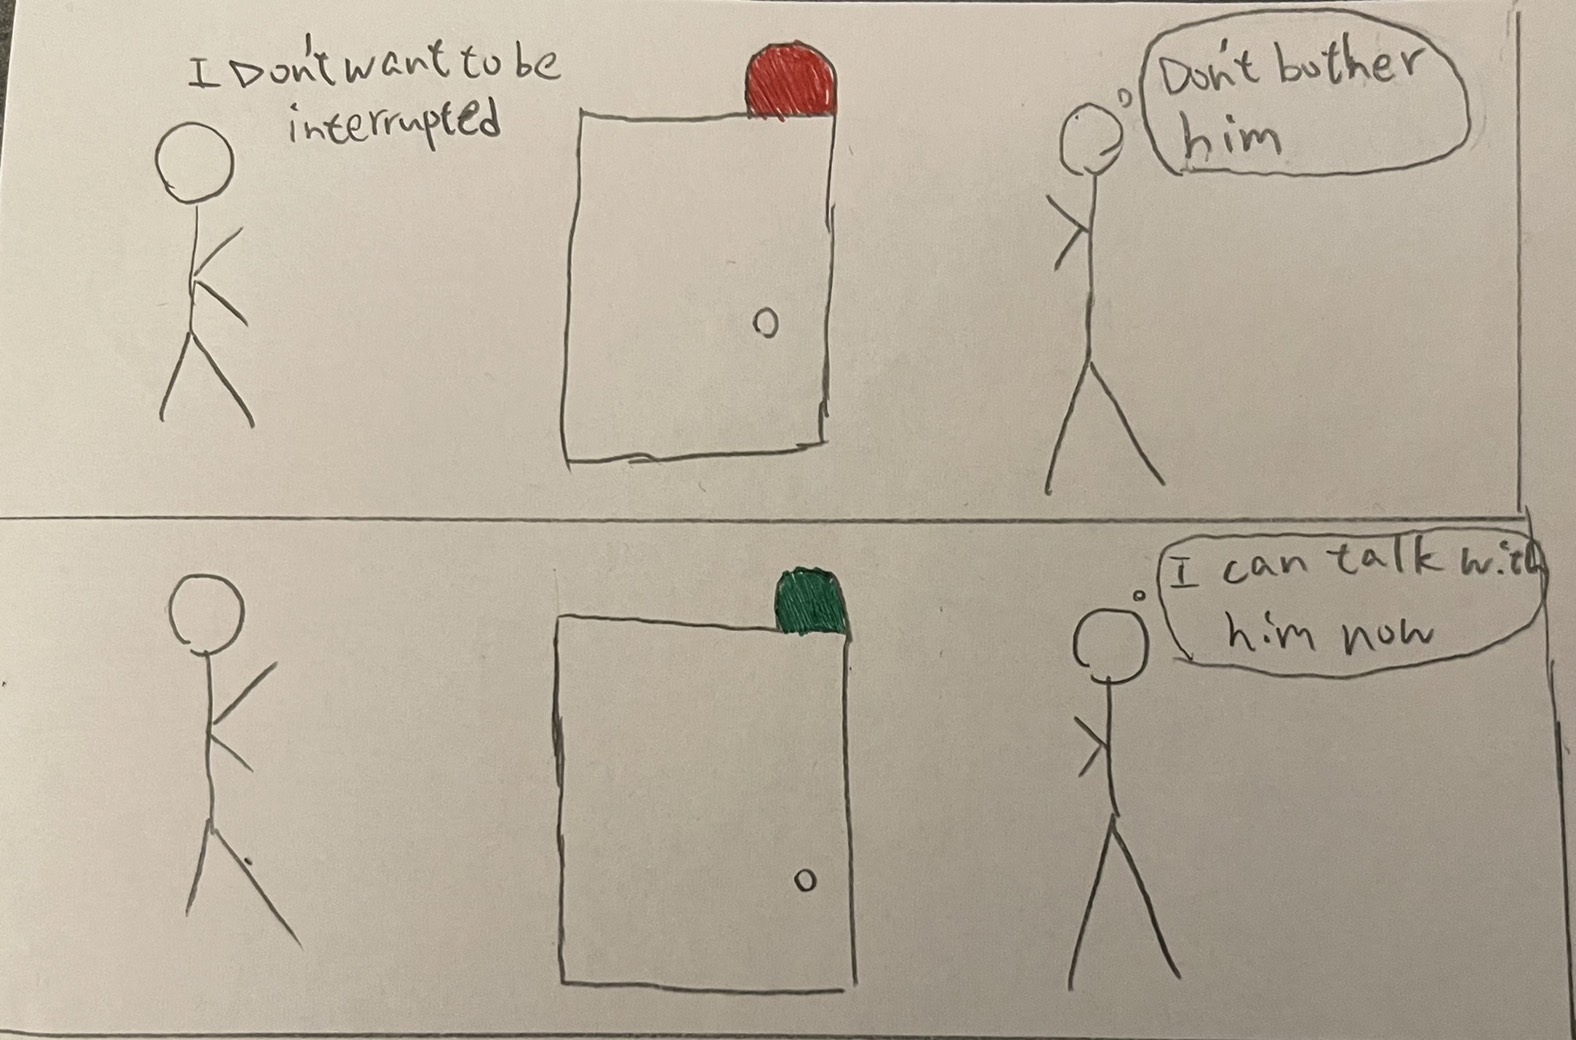 I Don't want to be
interrupted
Don't bother
him
I can talk with
him now